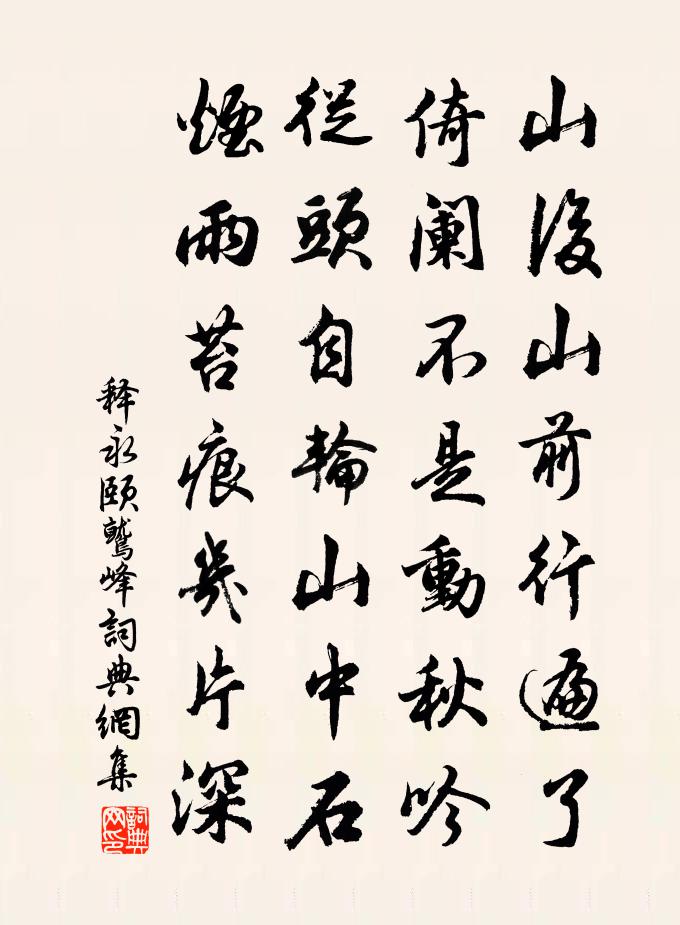 山後山前行遍了
倚闌不是動秋吟
從頭自輪山中石
煙雨苔痕幾片深
释永颐鷲峰詞典網集
詞典网印